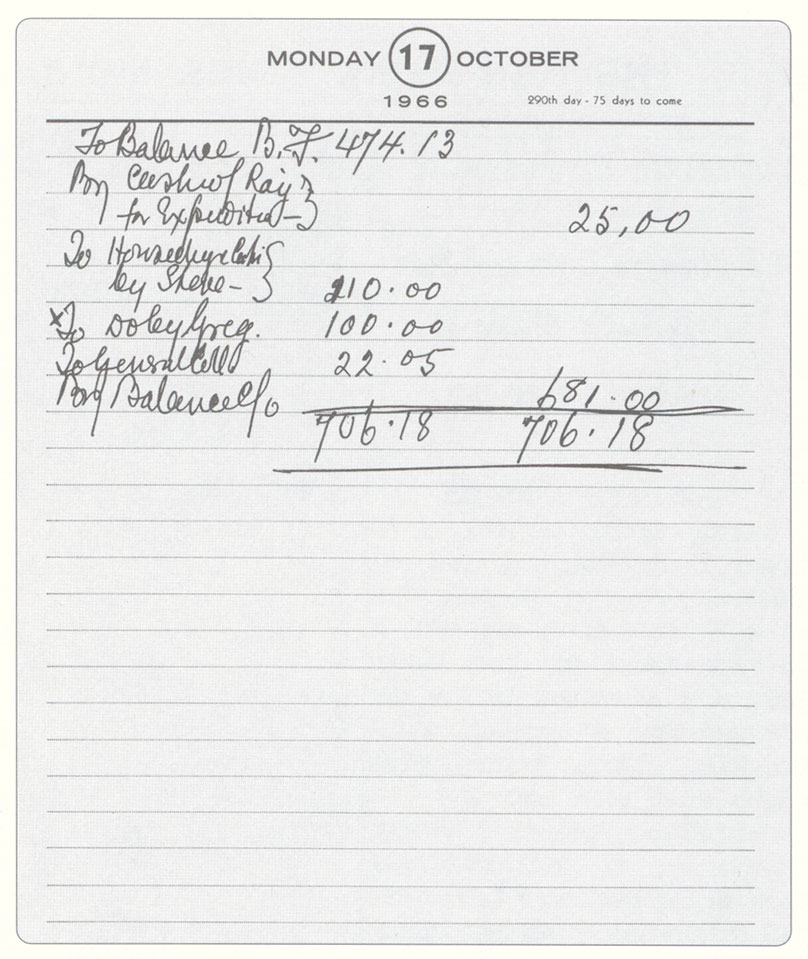 MONDAY 17 OCTOBER
1966 290th day - 75 days to come
To Balance B.F. 474.13
By Cash Ray
for 25,00
To
by Steve - 210.00
x To Greg. 100.00
To General 22.05
By Balance C/o 681.00
706.18 706.18